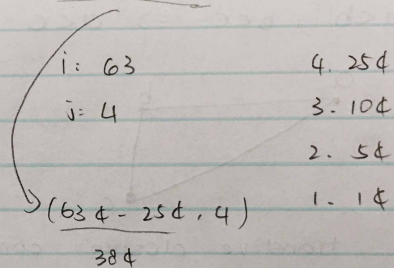 i: 63
j: 4
(63¢ - 25¢, 4)
38¢
4. 25¢
3. 10¢
2. 5¢
1. 1¢